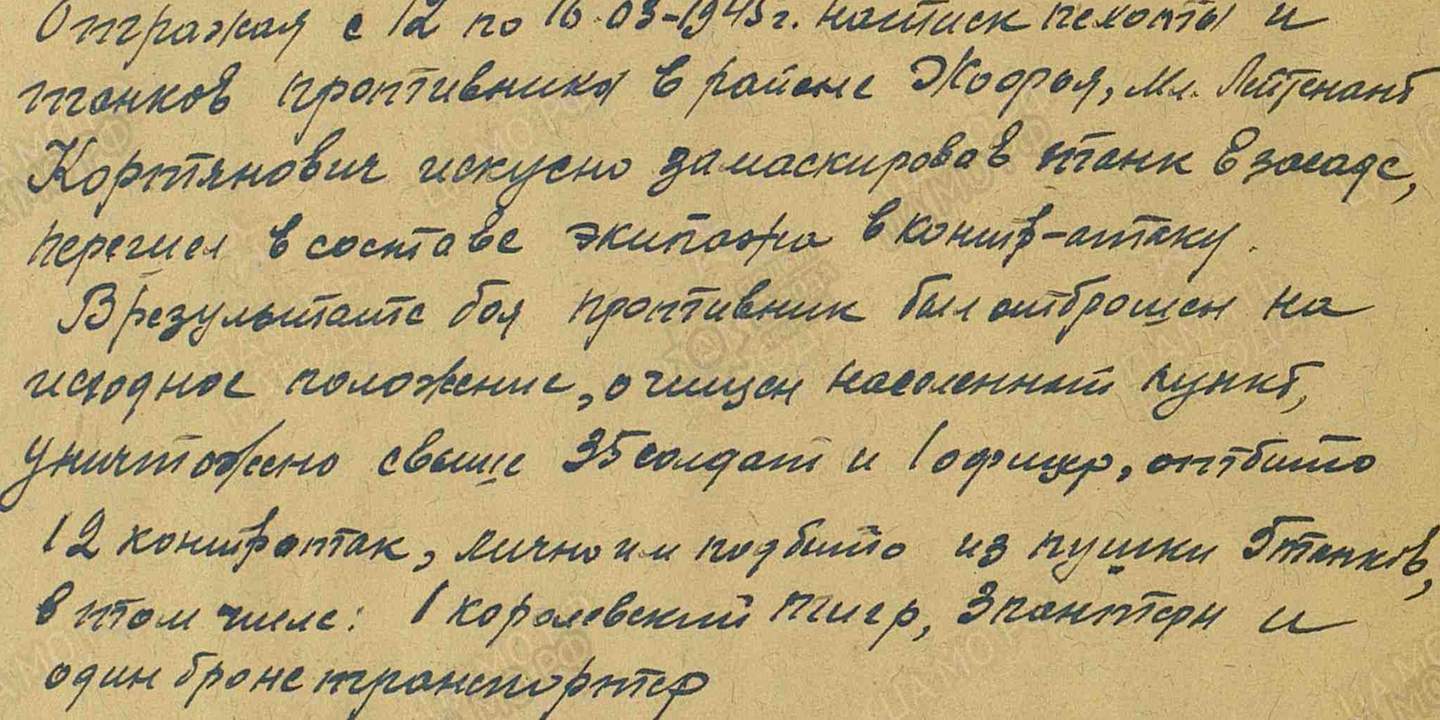 Отражая с 12 по 16.03-1945г. натиск пехоты и
танков противника в районе Жофья, Мл. Лейтенант
Кортянович искусно замаскировав танк в засаде,
перешел в составе экипажа в контр-атаку.
В результате боя противник был отброшен на
исходное положение, очищен населенный пункт,
уничтожено свыше 35 солдат и 1 офицер, отбито
12 контратак, лично им подбито из пушки 5 танков,
в том числе: 1 королевский тигр, 3 пантеры и
один бронетранспортер